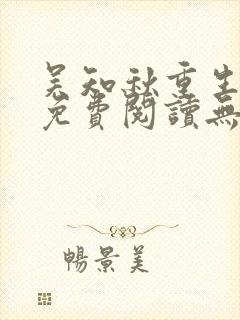 吴知秋重生
免費閱讀無
暢景美